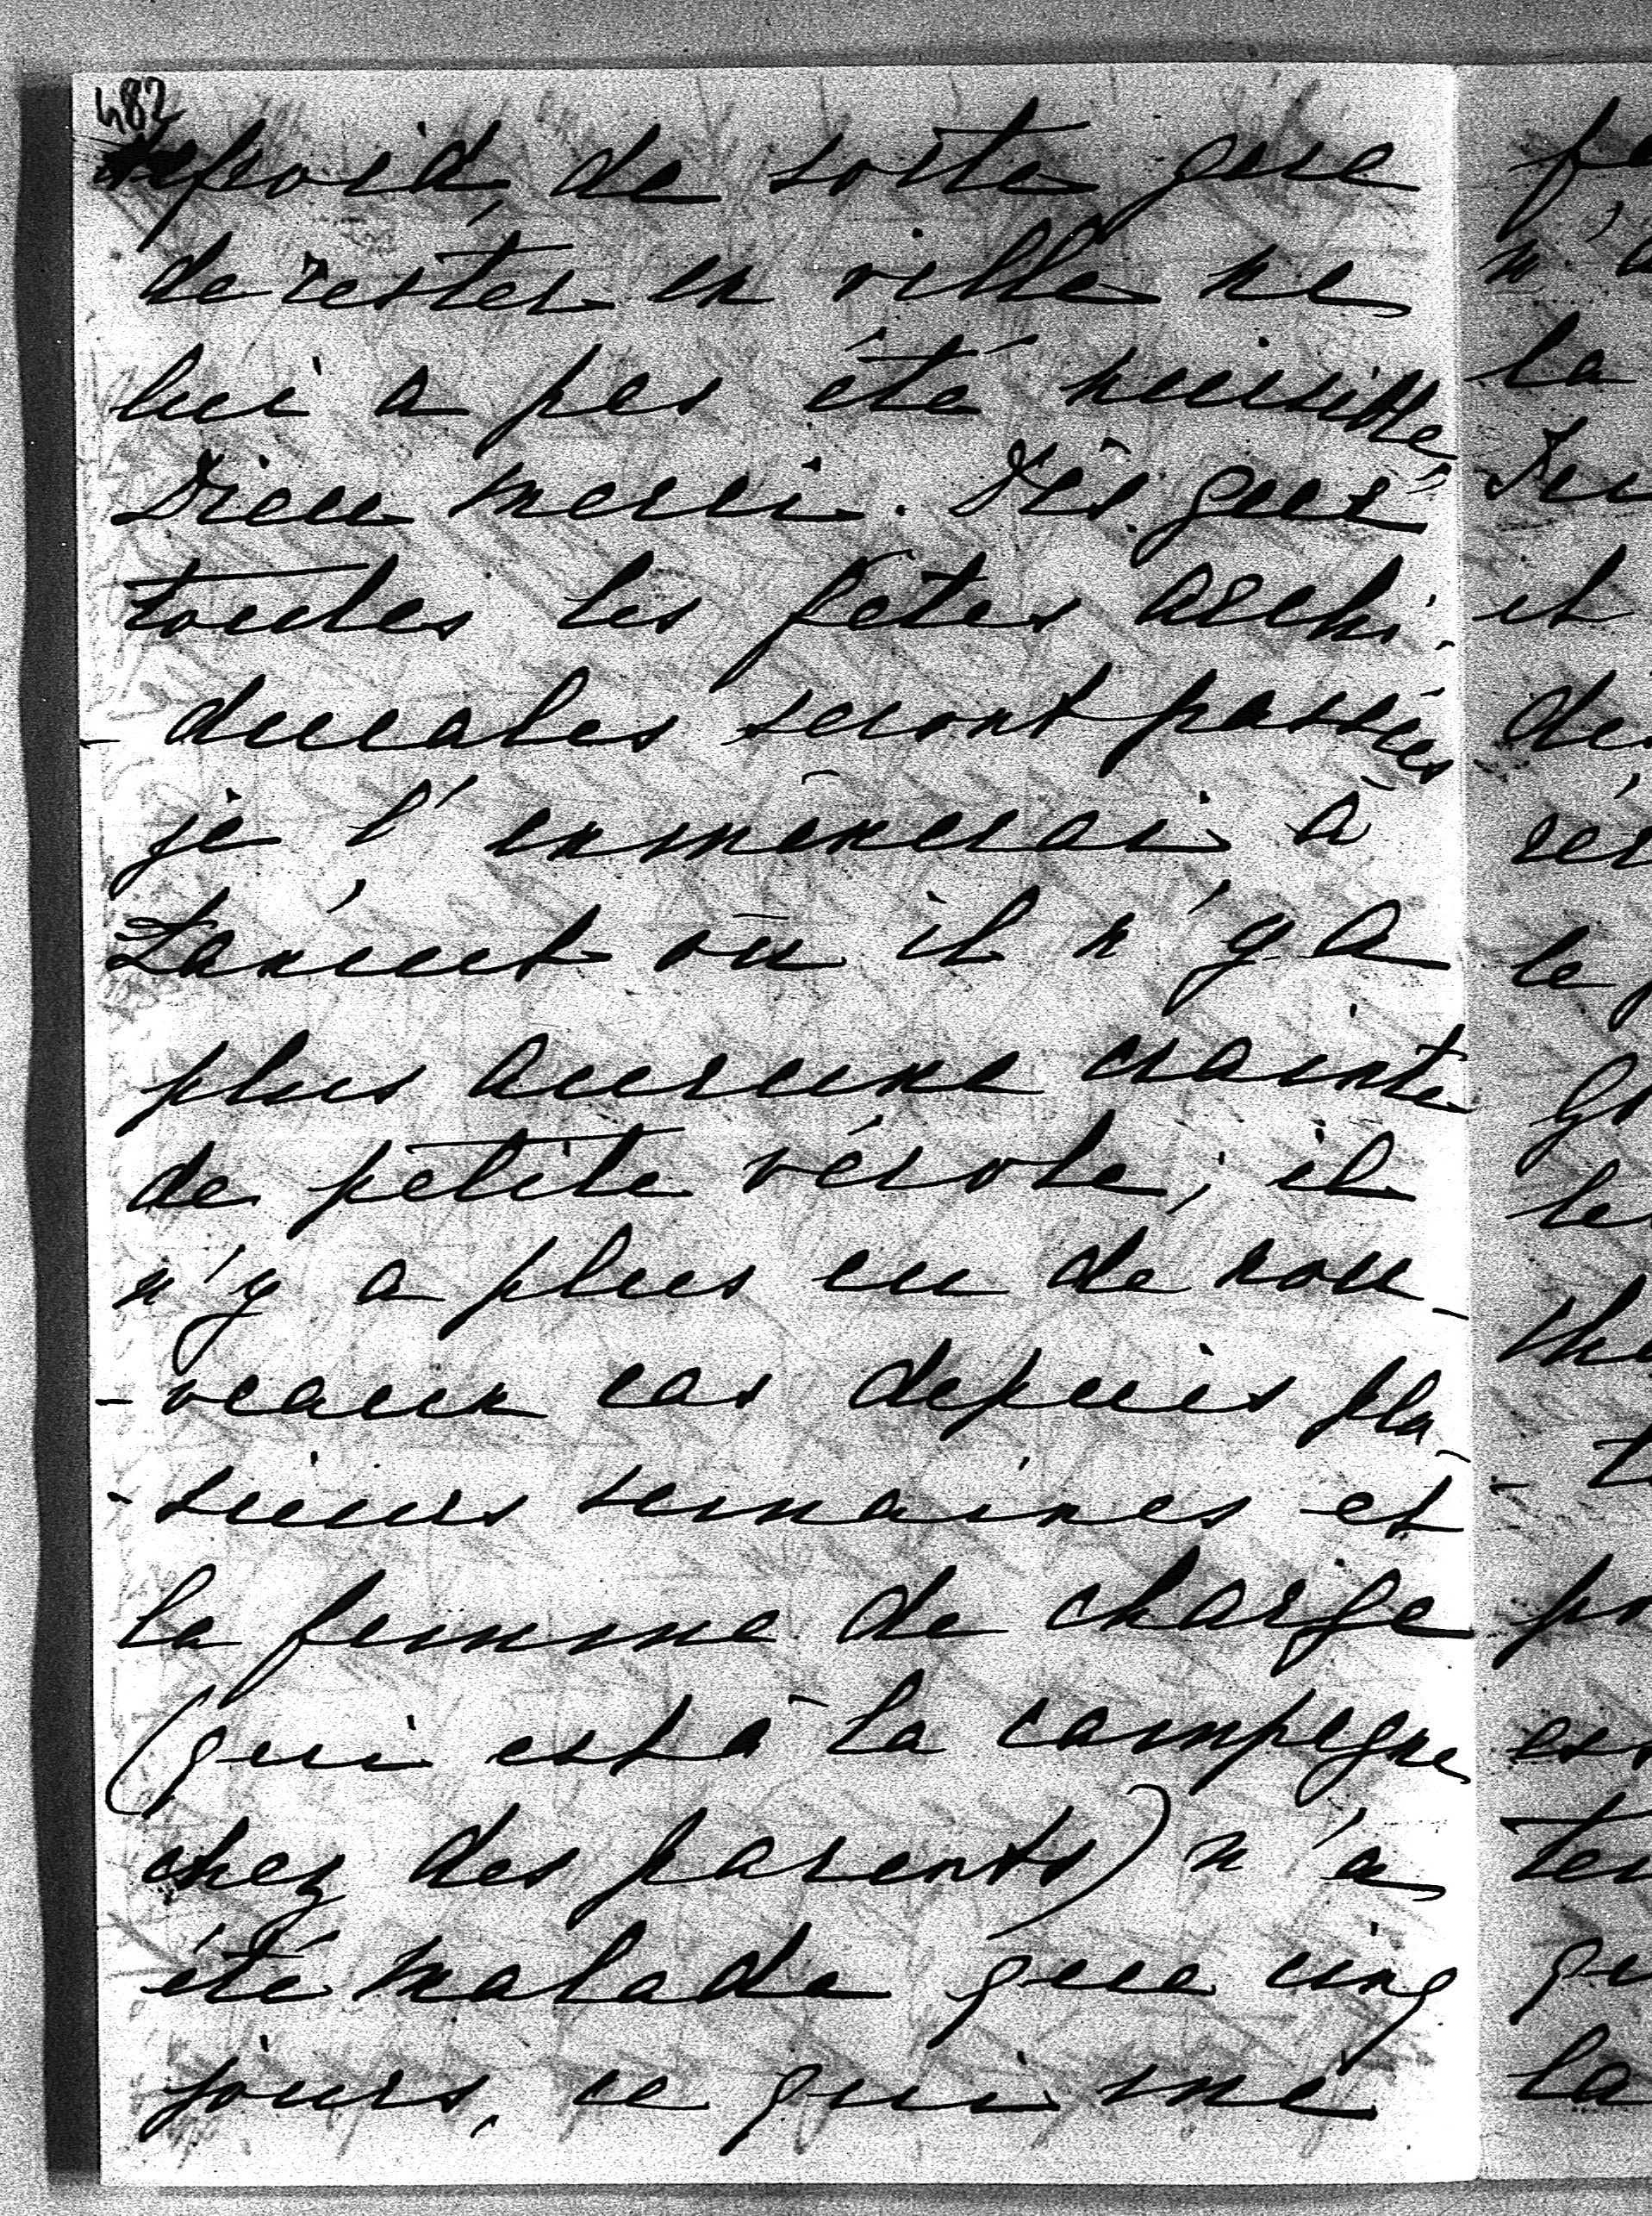 482
froid, de sorte que
de rester en ville ne
lui a pas été nuisible
Dieu merci. Dès que
toutes les fêtes archi-
-ducales seront passées
je l'emmènerai à
Lancut où il n'y a
plus aucune crainte
de petite vérole; il
n'y a plus eu de nou-
-veaux cas depuis plu-
-sieurs semaines et
la femme de charge
(qui est à la campagne
chez des parents) n'a
été malade que cinq
jours, ce qui me